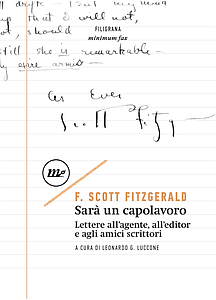 that I will not,
should
still she is remarkable -
FILIGRANA
minimum fax
As Ever
Scott Fitzg
mf
F. SCOTT FITZGERALD
Sarà un capolavoro
Lettere all'agente, all'editor
e agli amici scrittori
A CURA DI LEONARDO G. LUCCONE